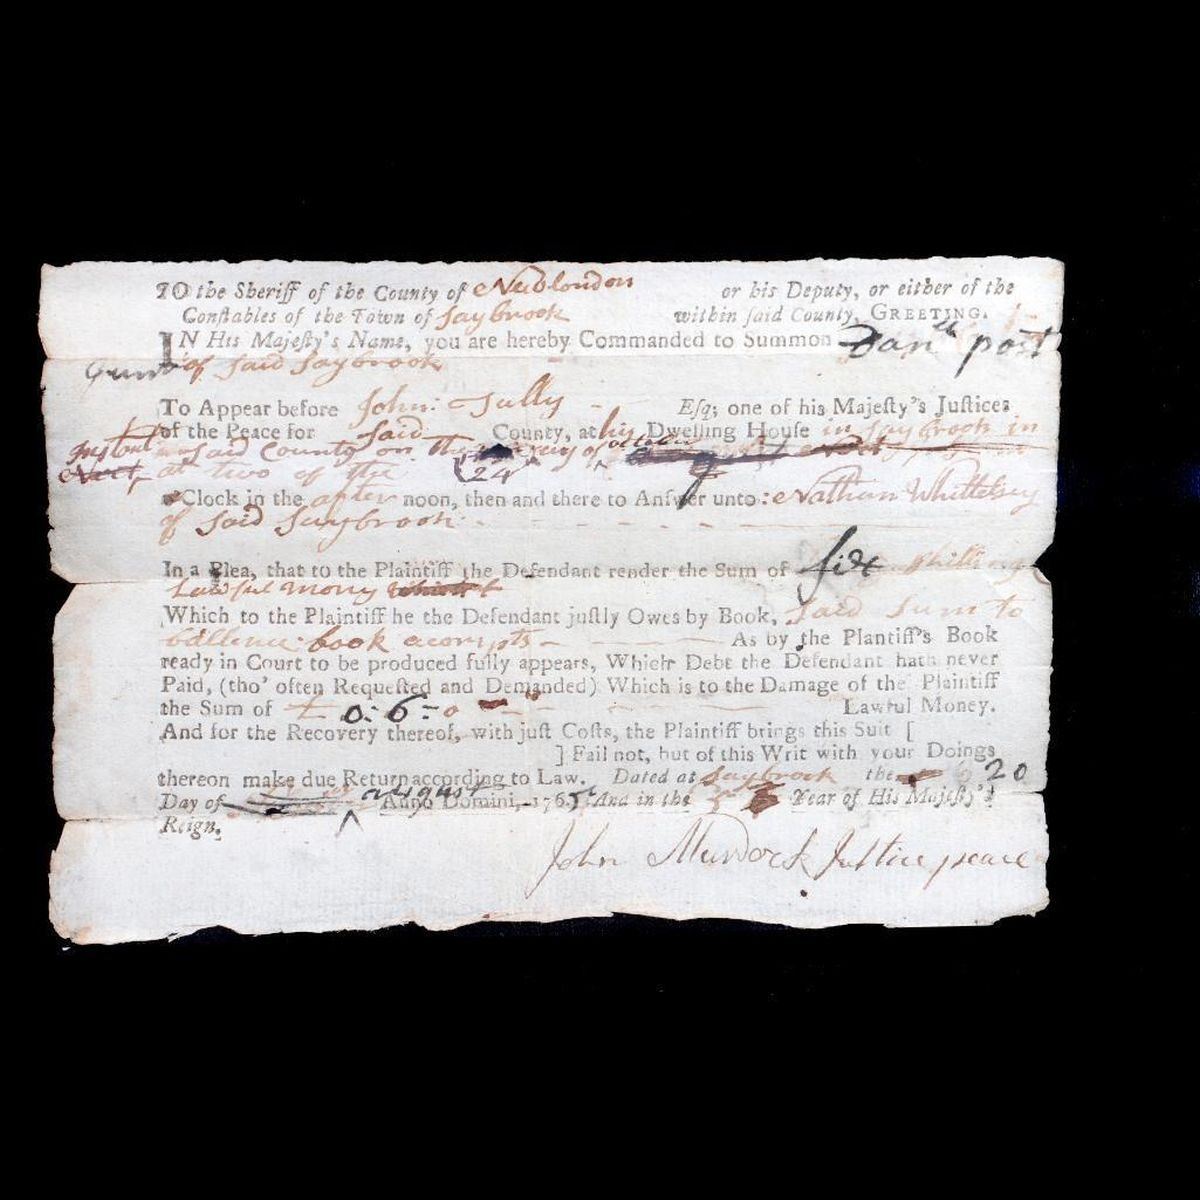 TO the Sheriff of the County of Newlondon or his Deputy, or either of the
Constables of the Town of Saybrook within said County, GREETING.
IN His Majesty's Name, you are hereby Commanded to Summon Danll post
of Said Saybrook
To Appear before John: Tully Esq; one of his Majesty's Justices
of the Peace for Said County, at his Dwelling House in Saybrook in
Said County on the 24 day of
Next, at two of the
Clock in the after noon, then and there to Answer unto: Nathan Whittelsey
of Said Saybrook
In a Plea, that to the Plaintiff the Defendant render the Sum of six shillings
Lawful Mony
Which to the Plaintiff he the Defendant justly Owes by Book, Said Sum to
ballence book acompts As by the Plantiff's Book
ready in Court to be produced fully appears, Which Debt the Defendant hath never
Paid, (tho' often Requested and Demanded) Which is to the Damage of the Plaintiff
the Sum of £ 0:6=0 Lawful Money.
And for the Recovery thereof, with just Costs, the Plaintiff brings this Suit [
] Fail not, but of this Writ with your Doings
thereon make due Return according to Law. Dated at Saybrook the 20
Day of august Anno Domini, 1765 And in the 5 Year of His Majesty's
Reign.
John Murdock Justice peace